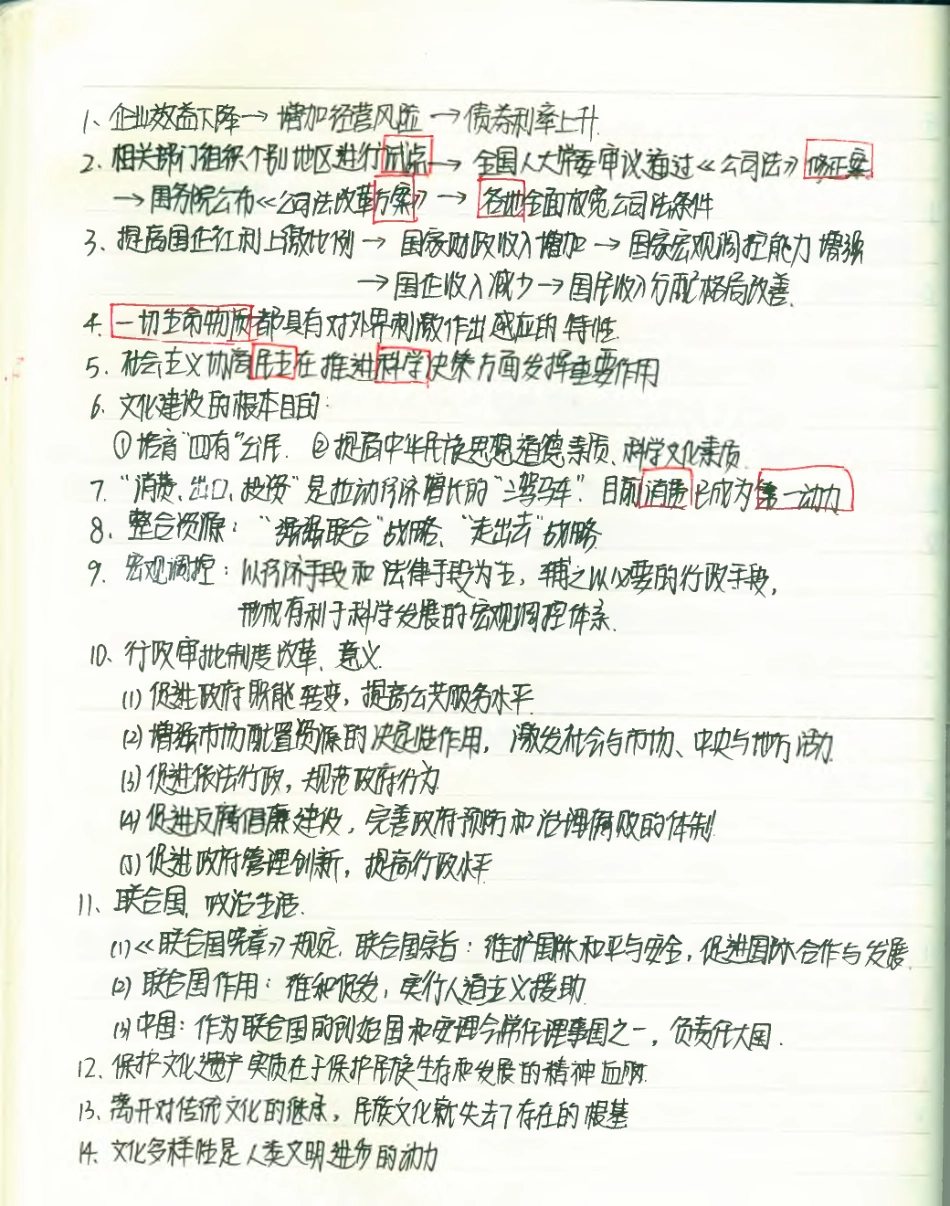 1、企业效益下降→增加经营风险→债券利率上升.
2、相关部门组织个别地区进行试点→全国人大常委审议通过《公司法》修正案
→国务院公布《公司法改革方案》→各地全面放宽公司法条件
3、提高国企红利上缴比例→国家财政收入增加→国家宏观调控能力增强
→国企收入减少→国民收入分配格局改善.
4、一切生命物质都具有对外界刺激作出感应的特性.
5、社会主义协商民主在推进科学决策方面发挥重要作用
6、文化建设的根本目的:
①培育"四有"公民. ②提高中华民族思想道德素质、科学文化素质.
7、"消费、出口、投资"是拉动经济增长的"三驾马车". 目前消费已成为第一动力
8、整合资源:"强强联合"战略、"走出去"战略
9、宏观调控:以经济手段和法律手段为主,辅之以必要的行政手段,
形成有利于科学发展的宏观调控体系.
10、行政审批制度改革、意义.
(1)促进政府职能转变,提高公共服务水平.
(2)增强市场配置资源的决定性作用,激发社会与市场、中央与地方活力.
(3)促进依法行政,规范政府行为.
(4)促进反腐倡廉建设,完善政府预防和治理腐败的体制.
(5)促进政府管理创新,提高行政水平.
11、联合国、政治生活.
(1)《联合国宪章》规定.联合国宗旨:维护国际和平与安全,促进国际合作与发展.
(2)联合国作用:维和促发,实行人道主义援助.
(3)中国:作为联合国的创始国和安理会常任理事国之一,负责任大国.
12、保护文化遗产实质在于保护民族生存和发展的精神血脉.
13、离开对传统文化的继承,民族文化就失去了存在的根基
14、文化多样性是人类文明进步的动力